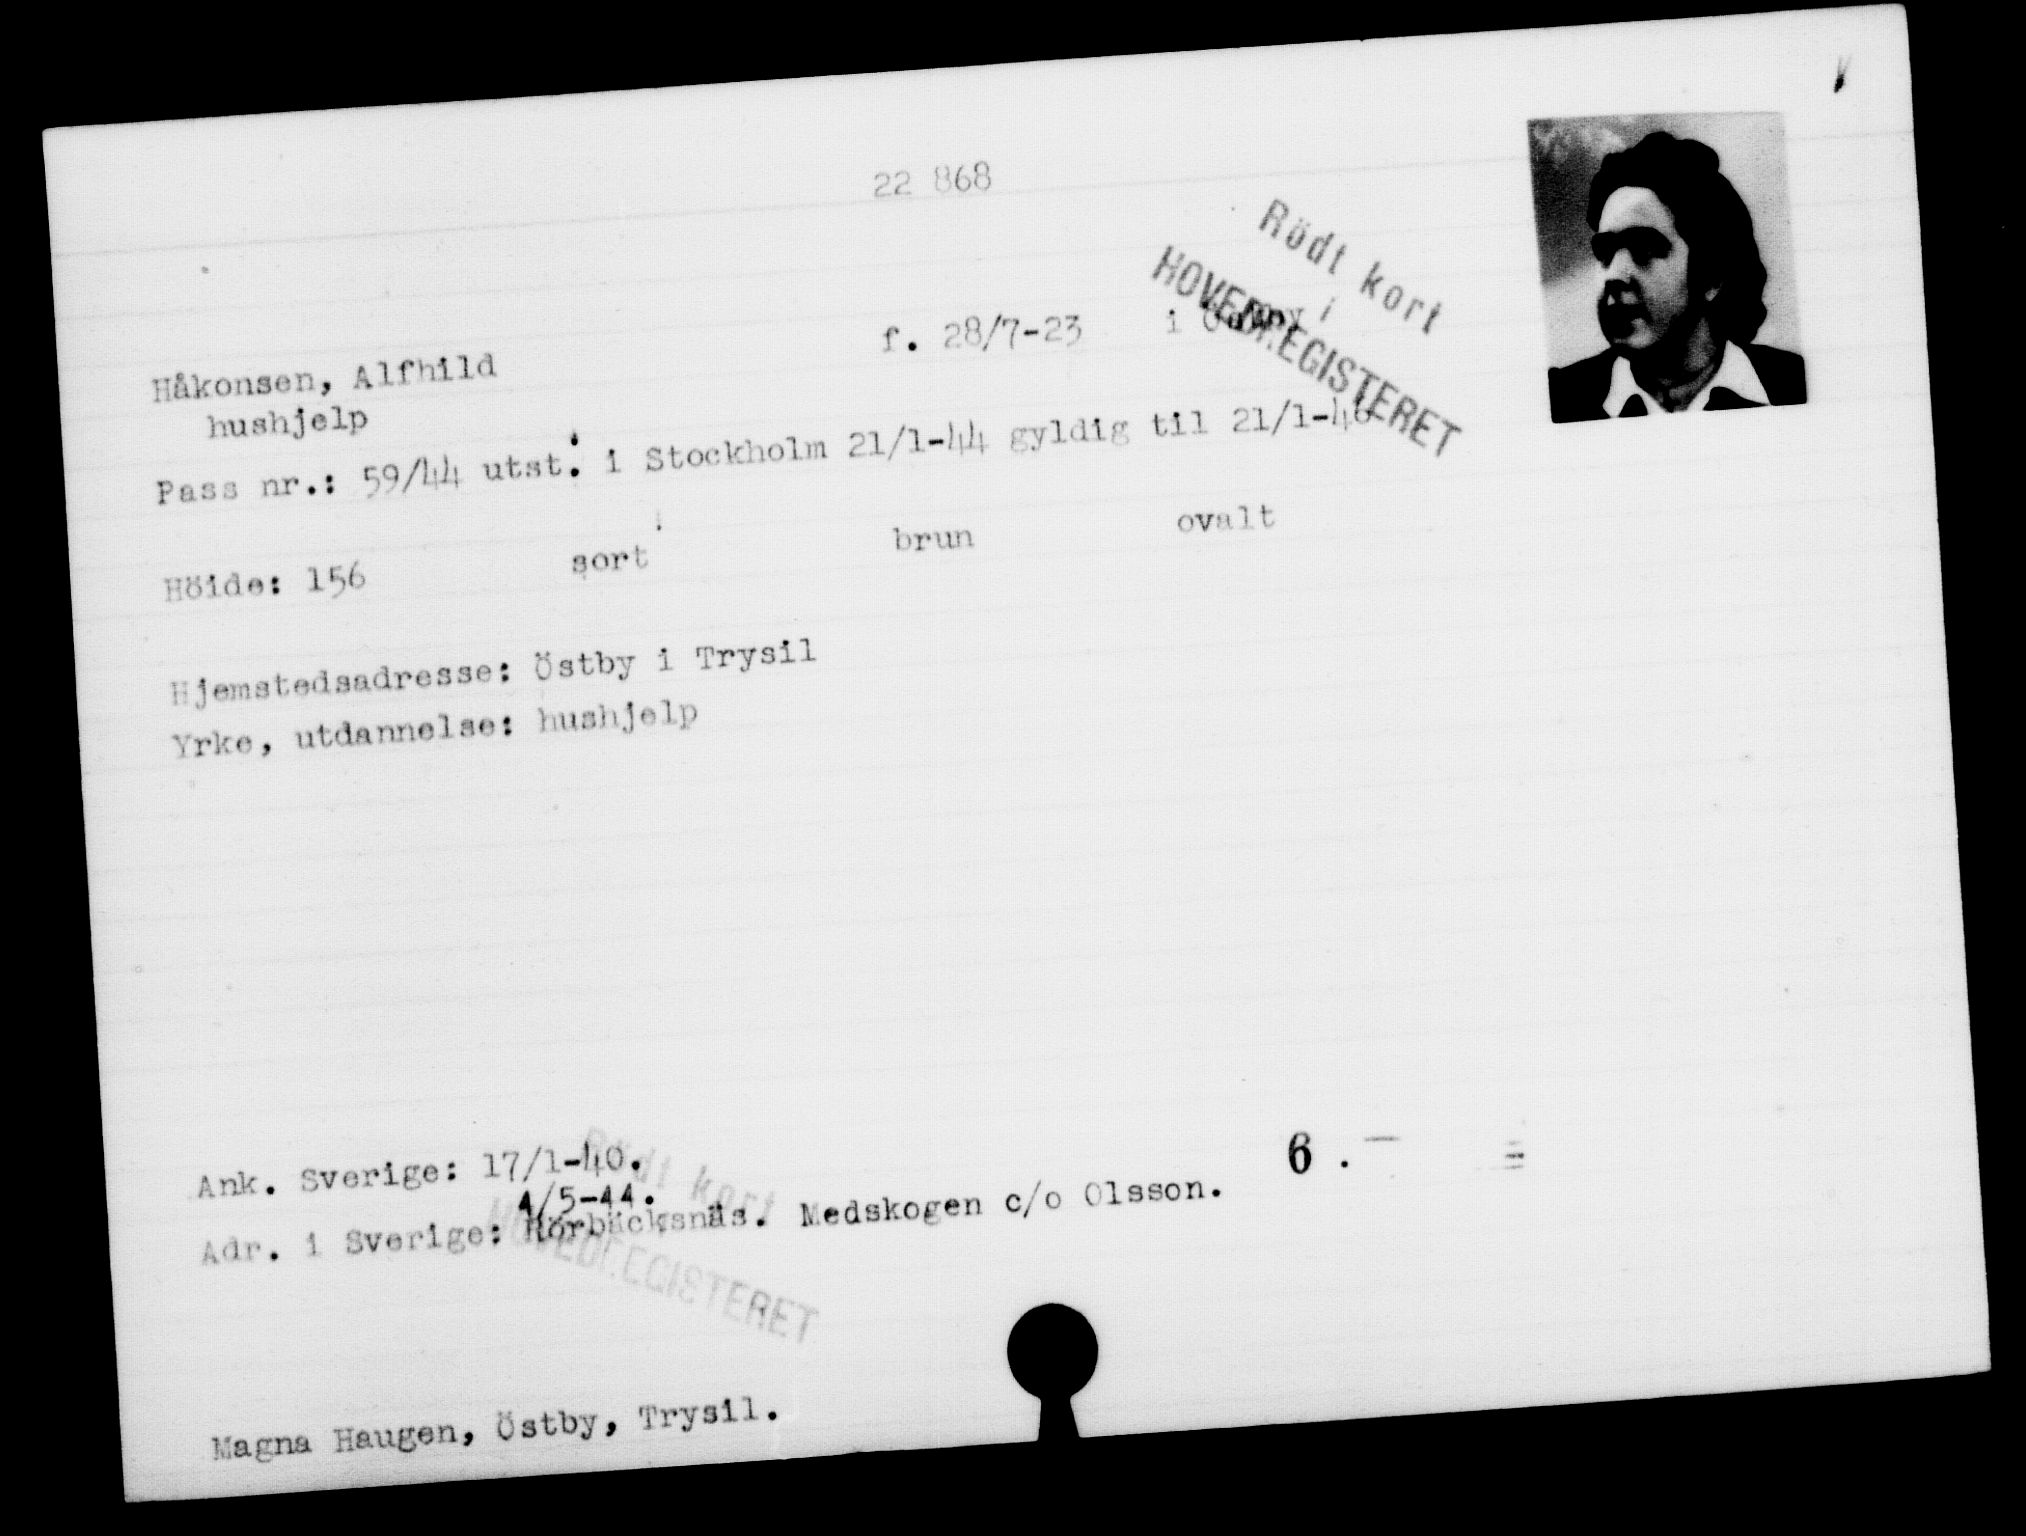 22 868
Rödt kort
i
HOVEDREGISTERET
Håkonsen, Alfhild f. 28/7-23 i Östby
hushjelp
Pass nr.: 59/44 utst. i Stockholm 21/1-44 gyldig til 21/1-46
Höide: 156 sort brun ovalt
Hjemstedsadresse: Östby i Trysil
Yrke, utdannelse: hushjelp
Ank. Sverige: 17/1-40. 6.-
4/5-44.
Adr. i Sverige: Rörbäcksnäs. Medskogen c/o Olsson.
Rödt kort
HOVEDREGISTERET
Magna Haugen, Östby, Trysil.